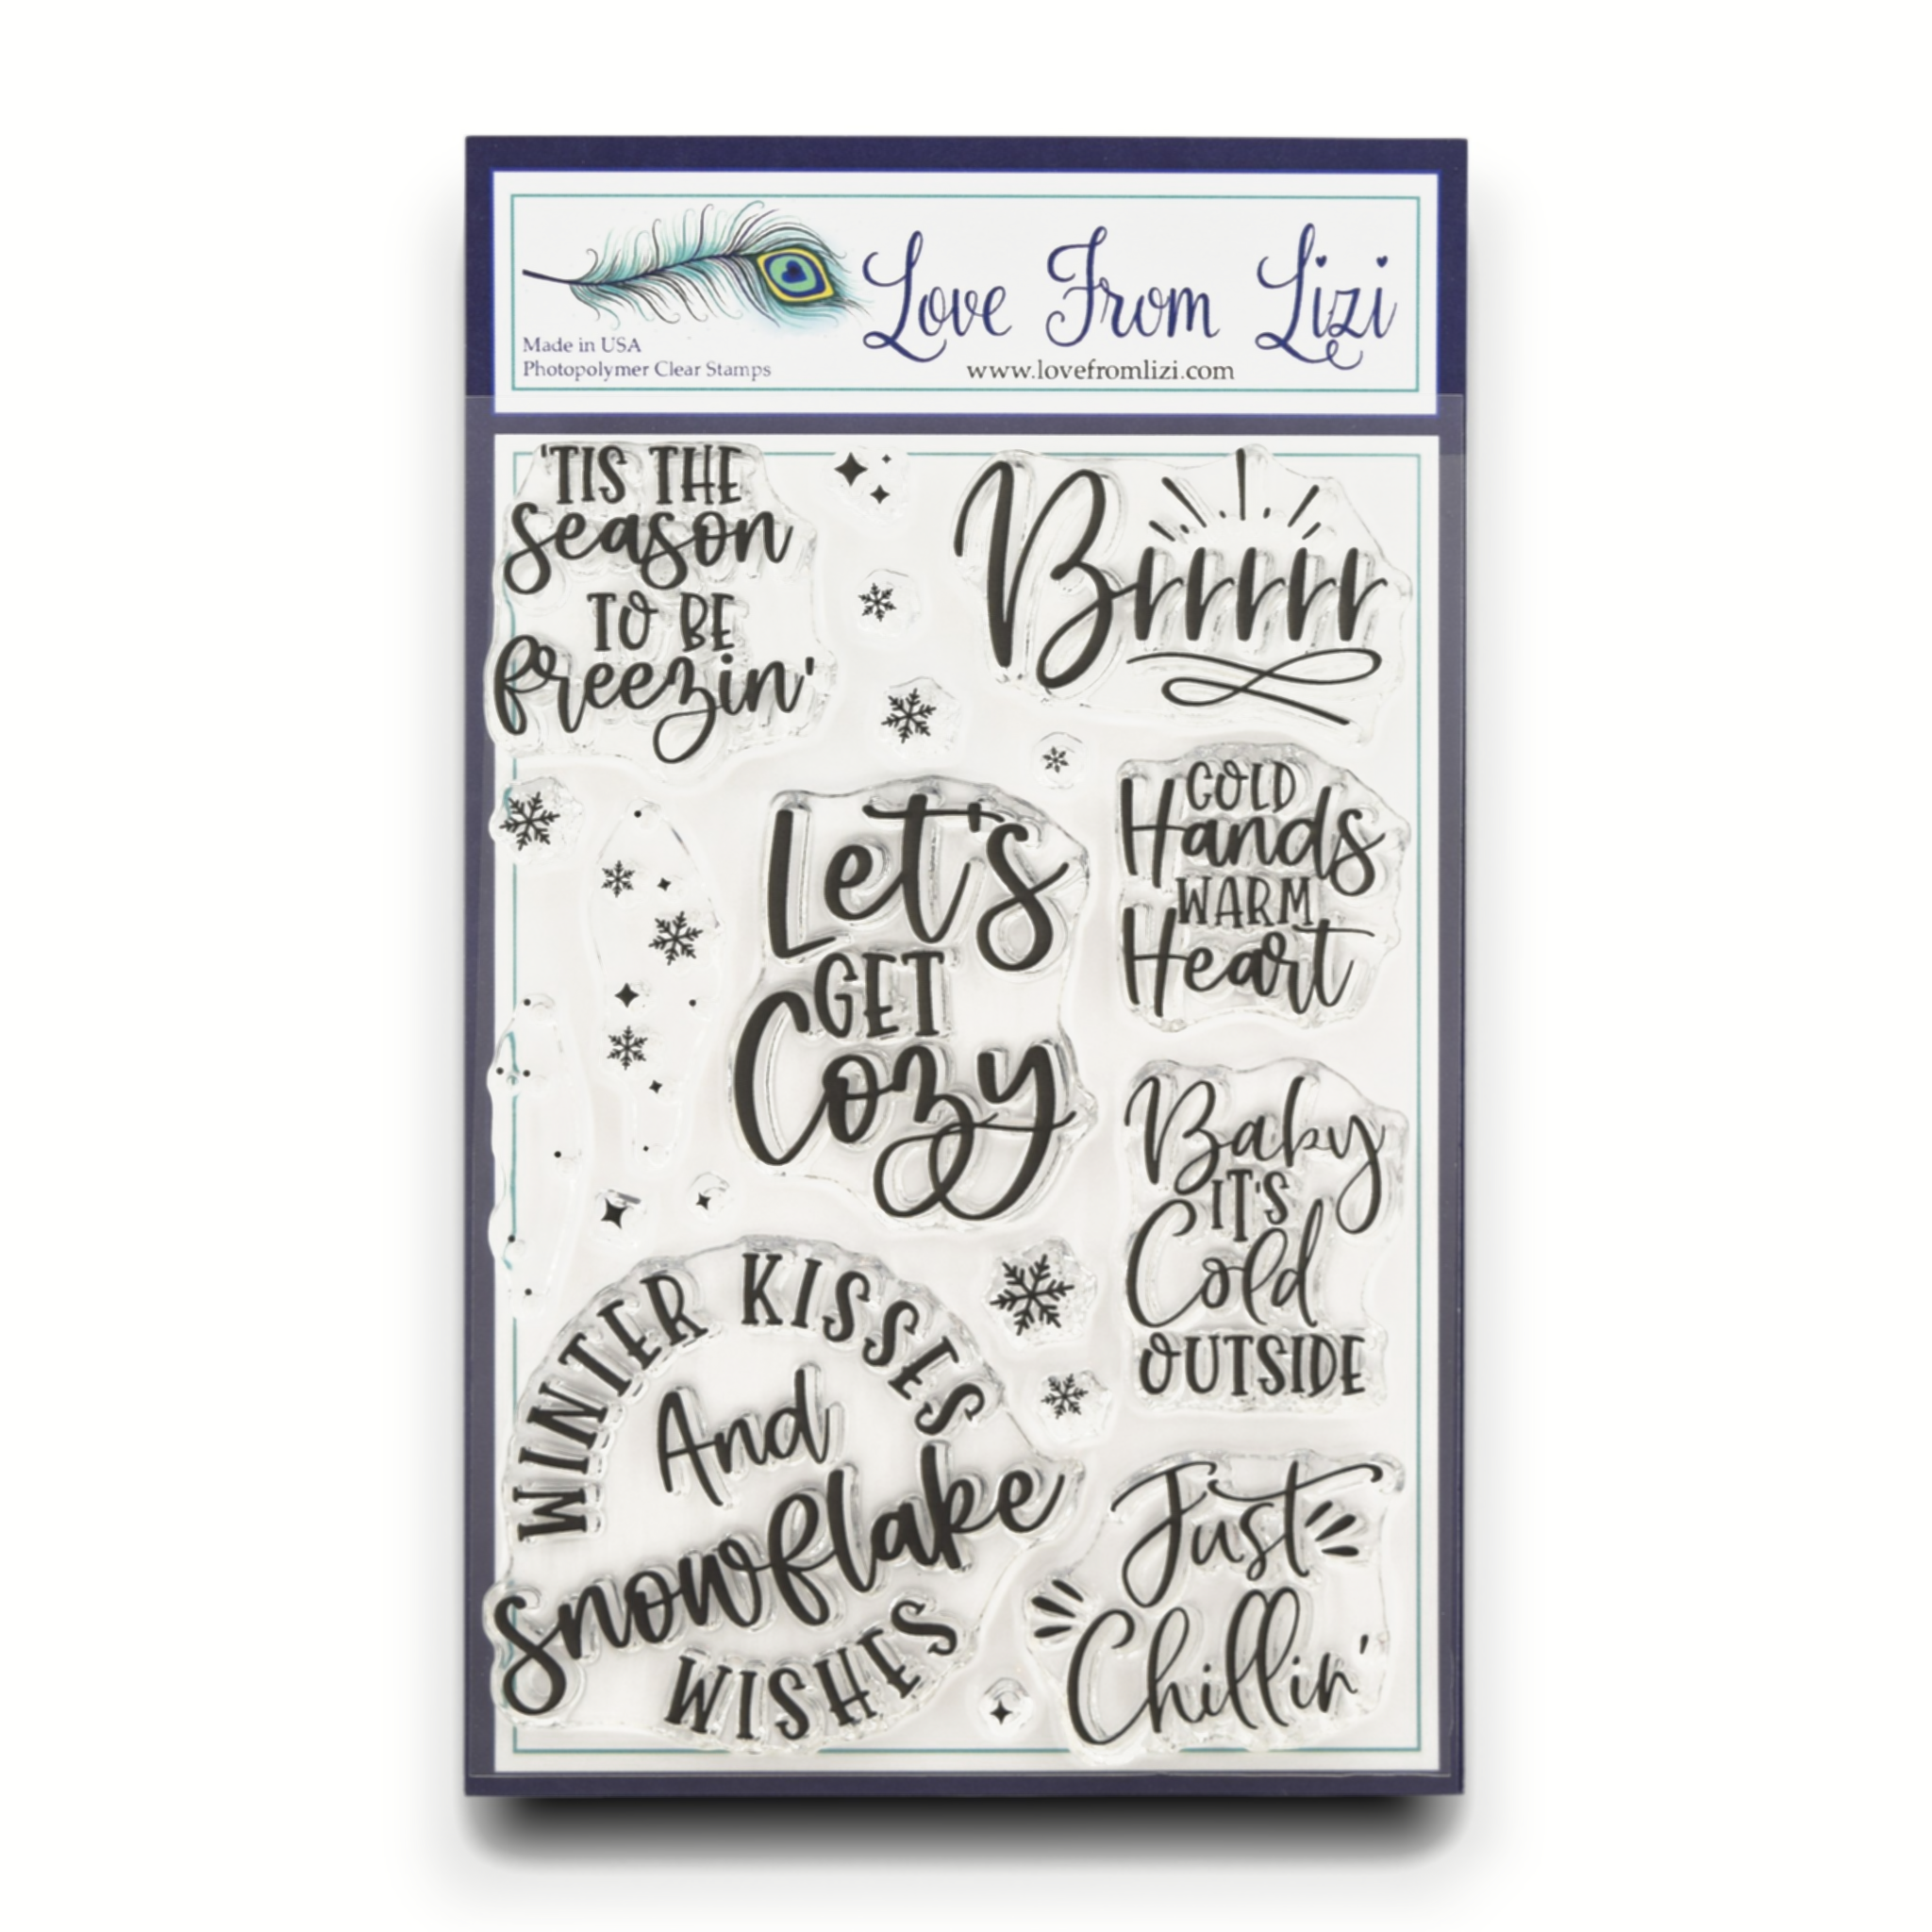 Love From Lizi
Made in USA
Photopolymer Clear Stamps
www.lovefromlizi.com
'TIS THE
season
TO BE
freezin'
Brrrrrr
Let's
GET
Cozy
COLD
Hands
WARM
Heart
Baby
IT'S
Cold
OUTSIDE
WINTER KISSES
And
Snowflake
WISHES
Just
Chillin'